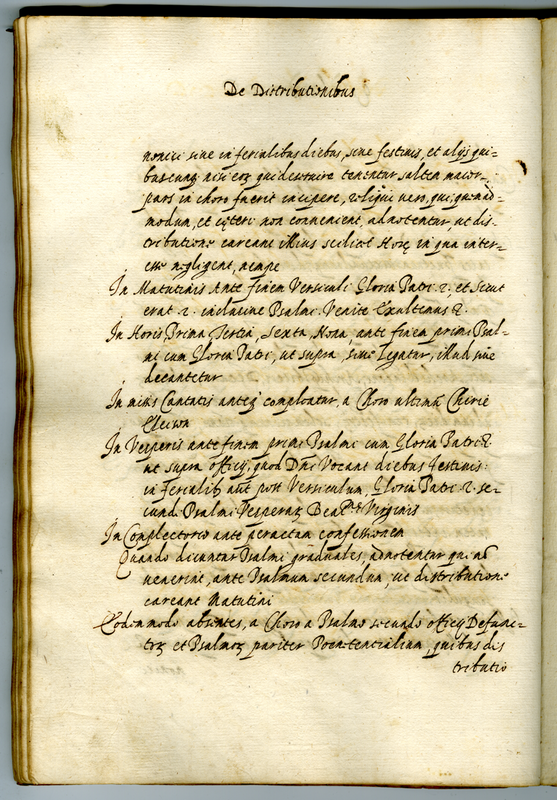 De Distributionibus
nonici siue in ferialibus diebus, siue festiuis, et alijs qui=
buscunq; nisi eoꝝ qui deseruire tenentur saltem maior
pars in choro fuerit incipere, reliqui uero, qui, quead=
modum, et cęteri non conuenient, adnotentur, ut dis=
tributione careant illius scilicet Horę in qua inter=
esse negligent, nempe
In Matutinis Ante finem Versiculi Gloria Patri. &. et Sicut
erat &. inclusiue Psalmi. Venite Exultemus &.
In Horis, Prima, Tertia, Sexta, Nona, ante finem primi Psal=
mi cum Gloria Patri, ut supra, siue legatur, illud siue
decantetur
In missis Cantatis anteq̃ compleatur, a Choro ultimũ Chirie
Eleison
In Vesperis ante finem primi Psalmi cum Gloria Patri &.
ut supra officij, quod Dñi Vocant diebus festiuis:
in ferialib. aũt post Versiculum, Gloria Patri. &. se=
cundi Psalmi Vesperaꝝ Beatę Virginis
In Complectorio ante peractam confessionem
Quando dicuntur Psalmi graduales, adnotentur qui nõ
uenerint, ante Psalmum secundum, ut distributione
careant Matutini
Eodem modo absentes, a Choro a Psalmo secundo officij Defunc=
toꝝ et Psalmoꝝ pariter Poenitentialium, quibus dis
tributio